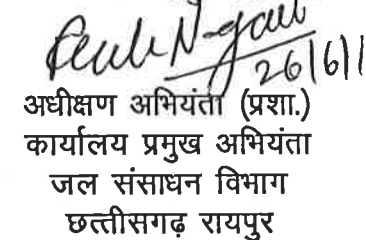 26/6/1
अधीक्षण अभियंता (प्रशा.)
कार्यालय प्रमुख अभियंता
जल संसाधन विभाग
छत्तीसगढ़ रायपुर